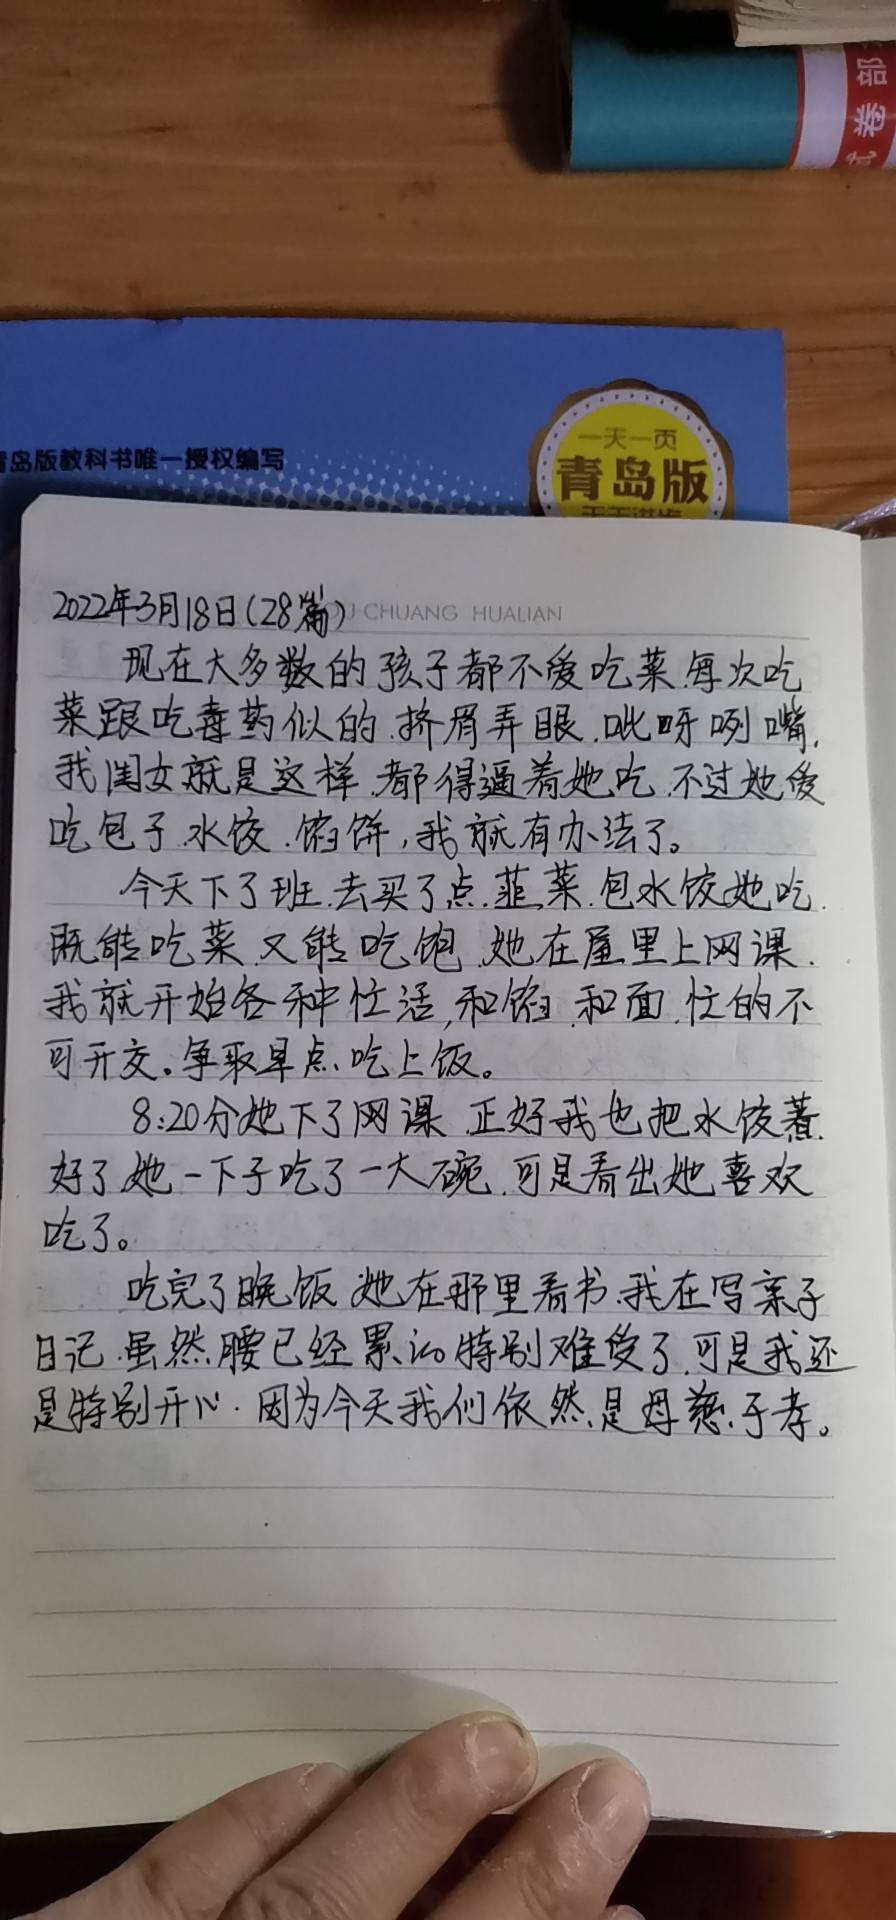 试卷部
青岛版教科书唯一授权编写
一天一页
青岛版
天天进步
CHUANG HUALIAN
2022年3月18日(28篇)
现在大多数的孩子都不爱吃菜.每次吃
菜跟吃毒药似的.挤眉弄眼.呲呀咧嘴,
我闺女就是这样.都得逼着她吃.不过她爱
吃包子.水饺.馅饼,我就有办法了。
今天下了班.去买了点韮菜.包水饺她吃.
既能吃菜.又能吃饱.她在屋里上网课.
我就开始各种忙活,和馅.和面.忙的不
可开交。争取早点吃上饭。
8:20分她下了网课 正好我也把水饺煮
好了.她一下子吃了一大碗.可是看出她喜欢
吃了。
吃完了晚饭 她在那里看书.我在写亲子
日记.虽然腰已经累的特别难受了.可是我还
是特别开心.因为今天我们依然是母慈子孝。